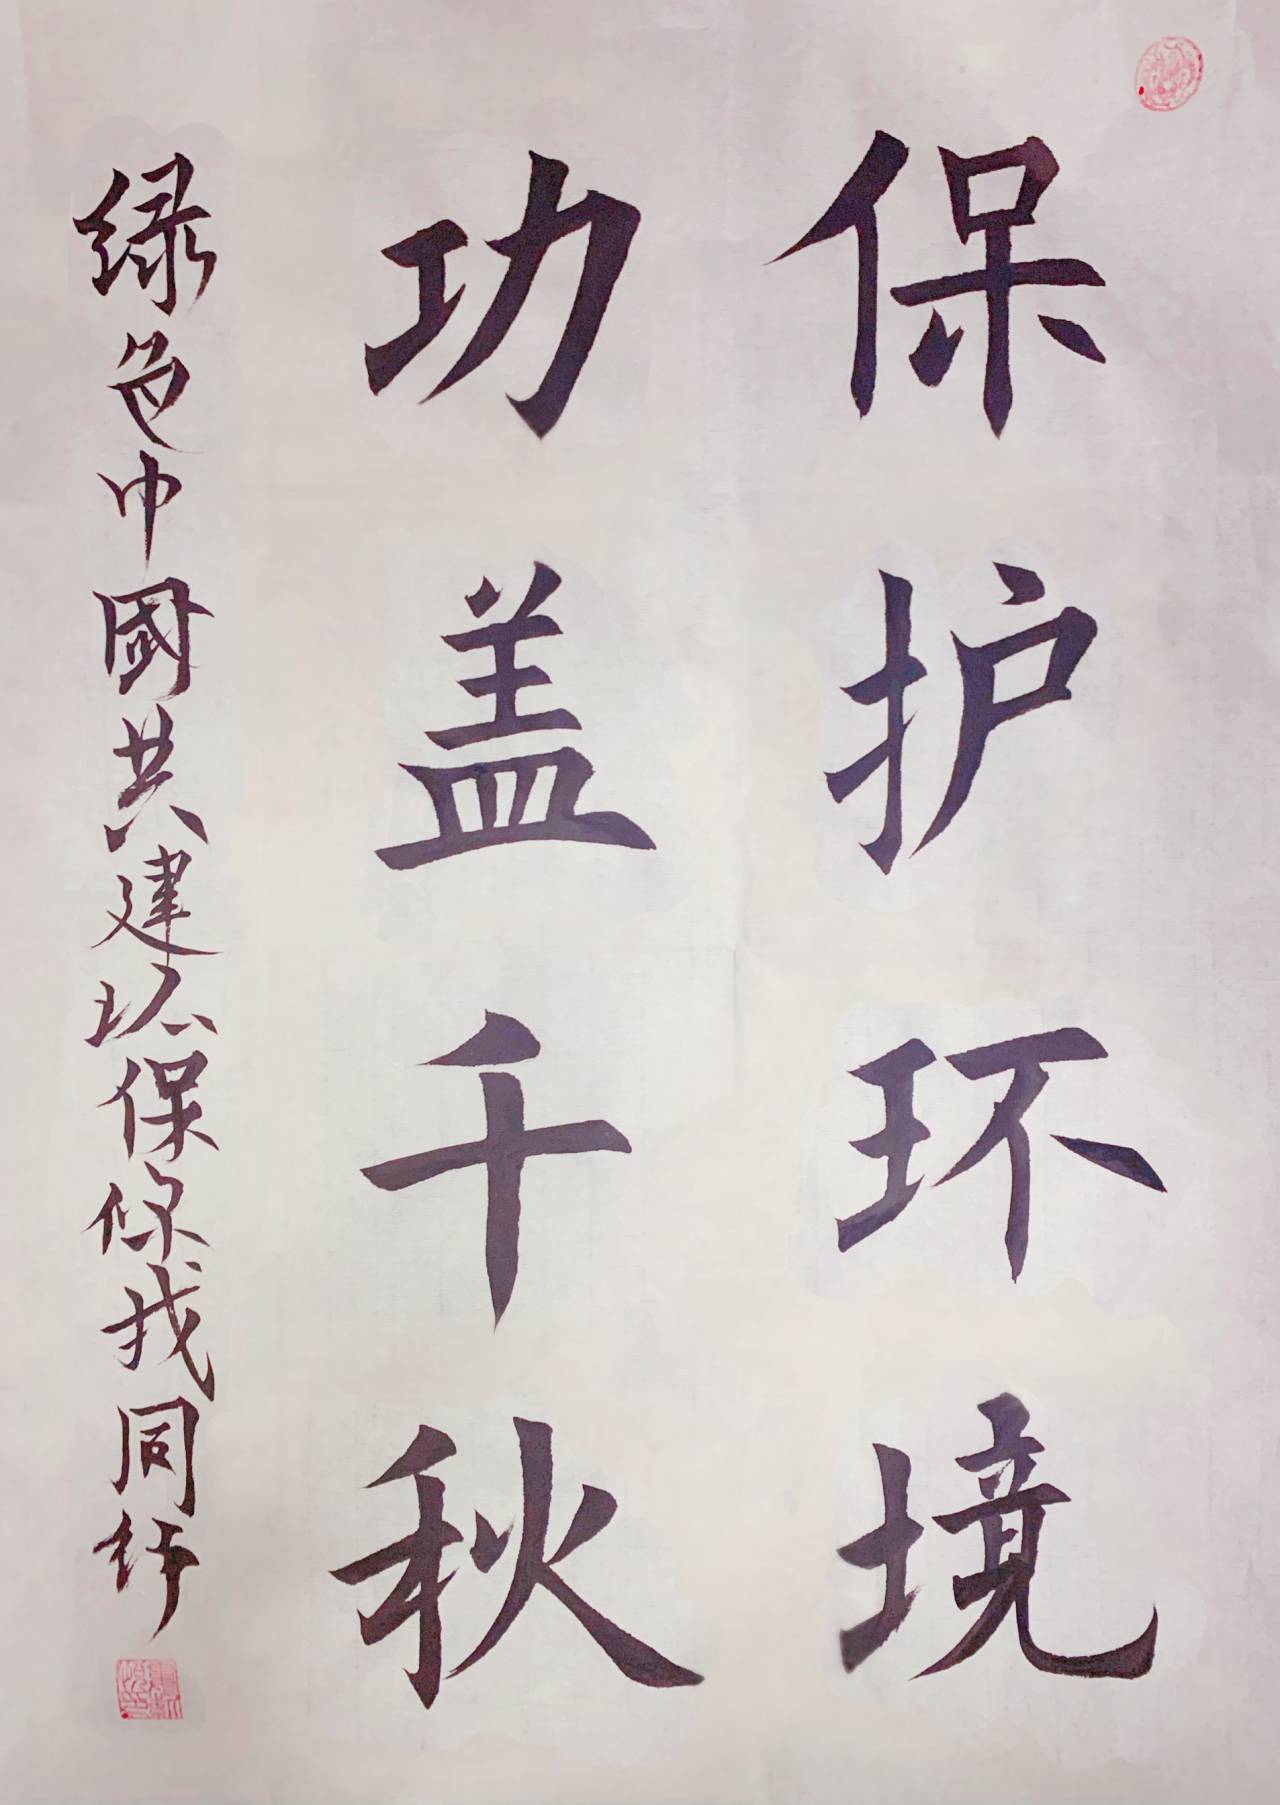 保护环境
功盖千秋
绿色中國共建环保你我同行